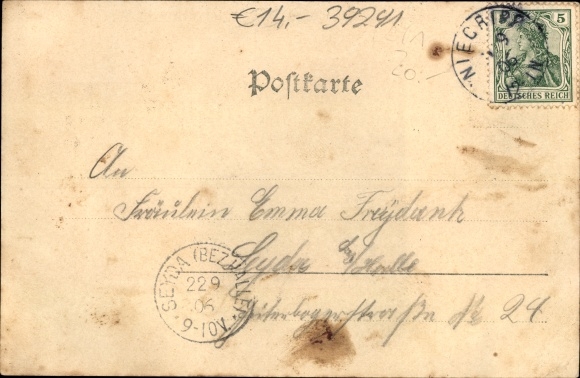 €14.- 39241
20.-
5
DEUTSCHES REICH
NIEGRIPP
Postkarte
An
Fräulein Emma Freydank
Seyda b/Halle
Jüterbogerstraße No 24
SEYDA (BEZ. HALLE)
22 9
06
9-10V